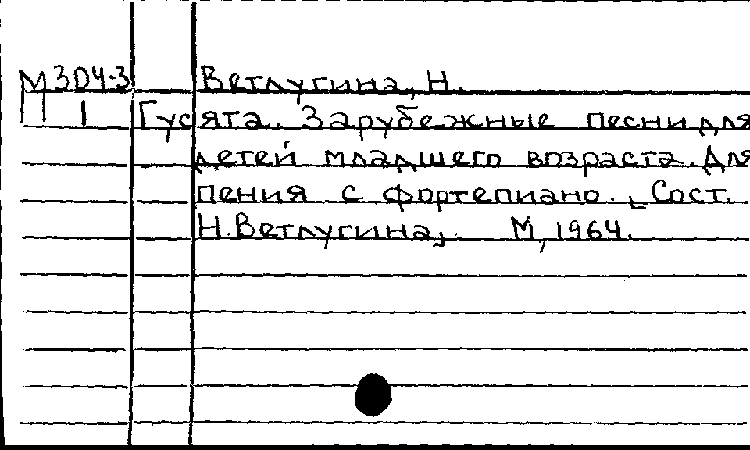 М304-3 Ветлугина, Н.
1 Гусята. Зарубежные песни для
детей младшего возраста. Для
пения с фортепиано. [Сост.
Н.Ветлугина]. М, 1964.